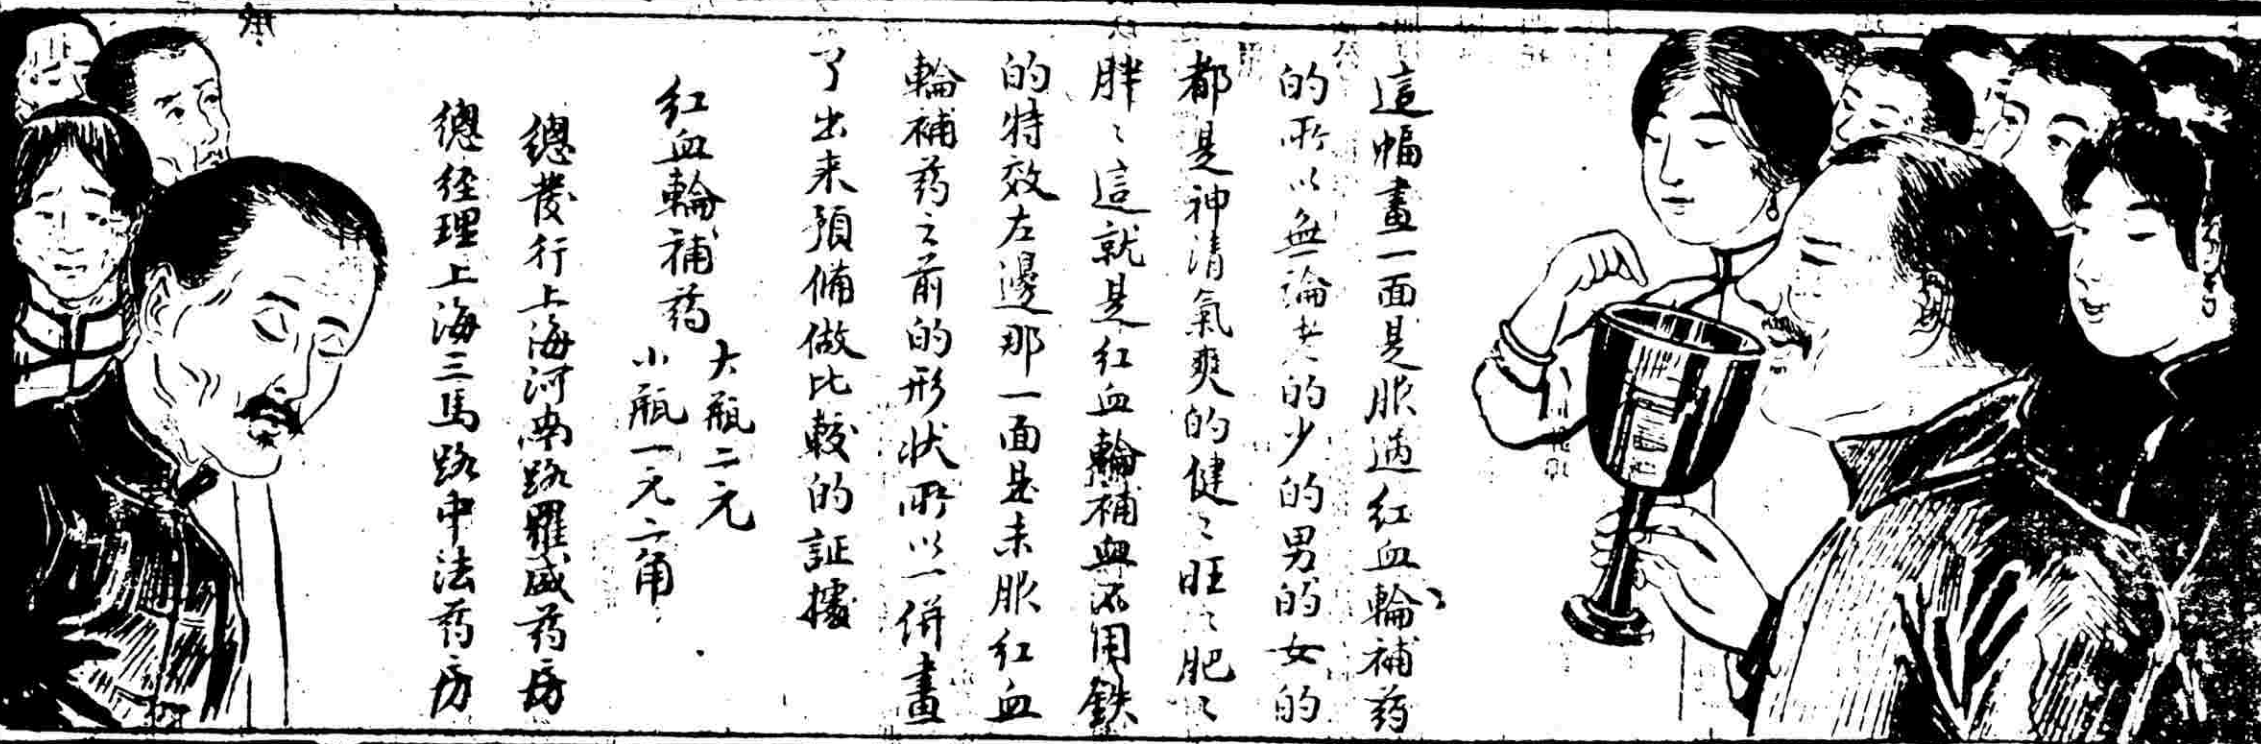 這幅畫一面是服過紅血輪補药
的所以無論老的少的男的女的
都是神清氣爽的健〻旺〻肥〻
胖〻這就是紅血輪補血不用鉄
的特效左邊那一面是未服紅血
輪補药之前的形狀所以一併畫
了出来預備做比較的証據
紅血輪補药
大瓶二元
小瓶一元二角
總發行上海河南路羅威药房
總经理上海三馬路中法药房